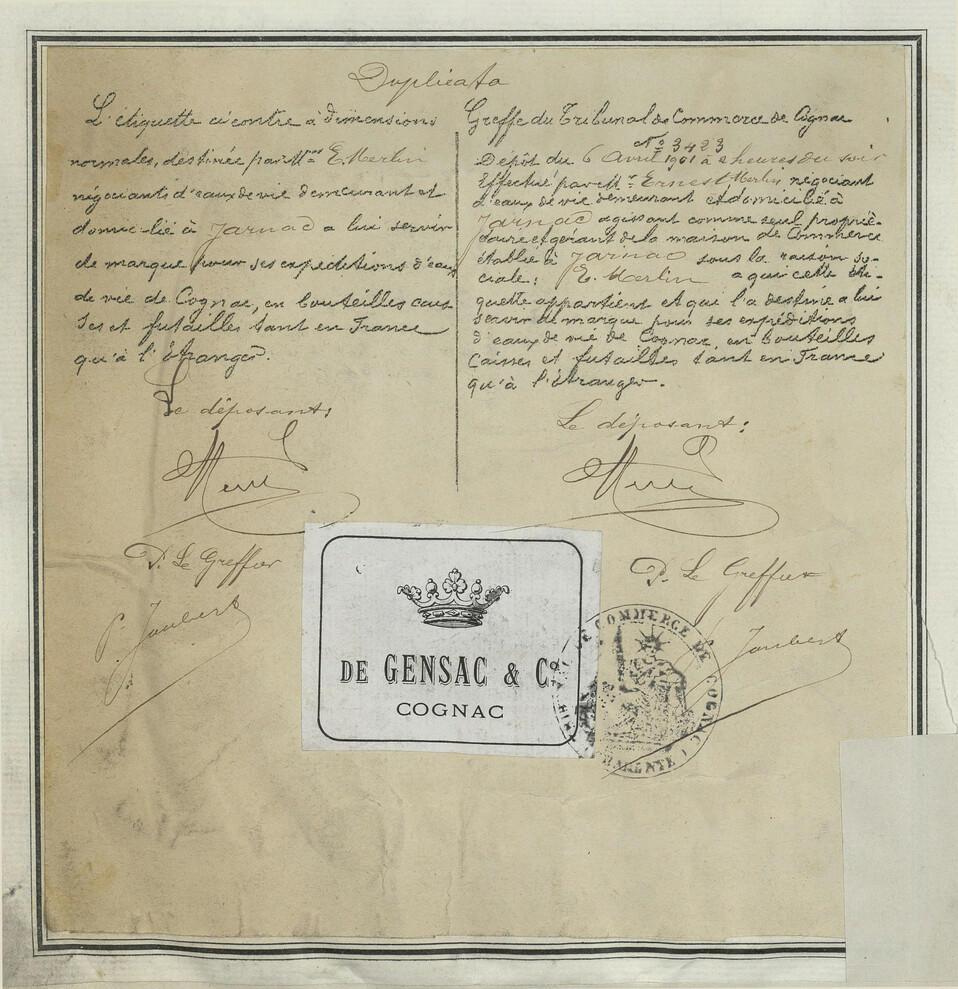 Duplicata
L'étiquette ci contre à dimensions
normales, destinée par Mr E. Merlin
négociants d'eaux de vie demeurant et
domicilié à Jarnac a lui servir
de marque pour ses expéditions d'eaux
de vie de Cognac, en bouteilles cais
ses et futailles tant en France
qu'à l'étranger.
Le déposant:
P. Le Greffier
P. Jaubert
Greffe du Tribunal de Commerce de Cognac
No 3423
Dépôt du 6 Avril 1901 à 2 heures du soir
Effectué par Mr Ernest Merlin négociant
d'eaux de vie demeurant et domicilié à
Jarnac agissant comme seul proprié-
taire et gérant de la maison de Commerce
établie à Jarnac sous la raison so-
ciale: E. Merlin a qui cette éti-
quette appartient et qui l'a destine a lui
servir de marque pour ses expéditions
d'eaux de vie de Cognac, en bouteilles
Caisses et futailles tant en France
qu'à l'étranger.
Le déposant:
P. Le Greffier
Jaubert
DE GENSAC & Co
COGNAC
TRIBUNAL DE COMMERCE DE COGNAC
CHARENTE